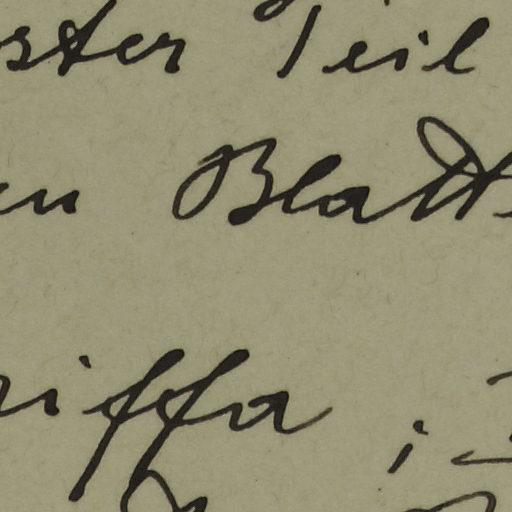 ster Teil
en Blatt
riffa ;